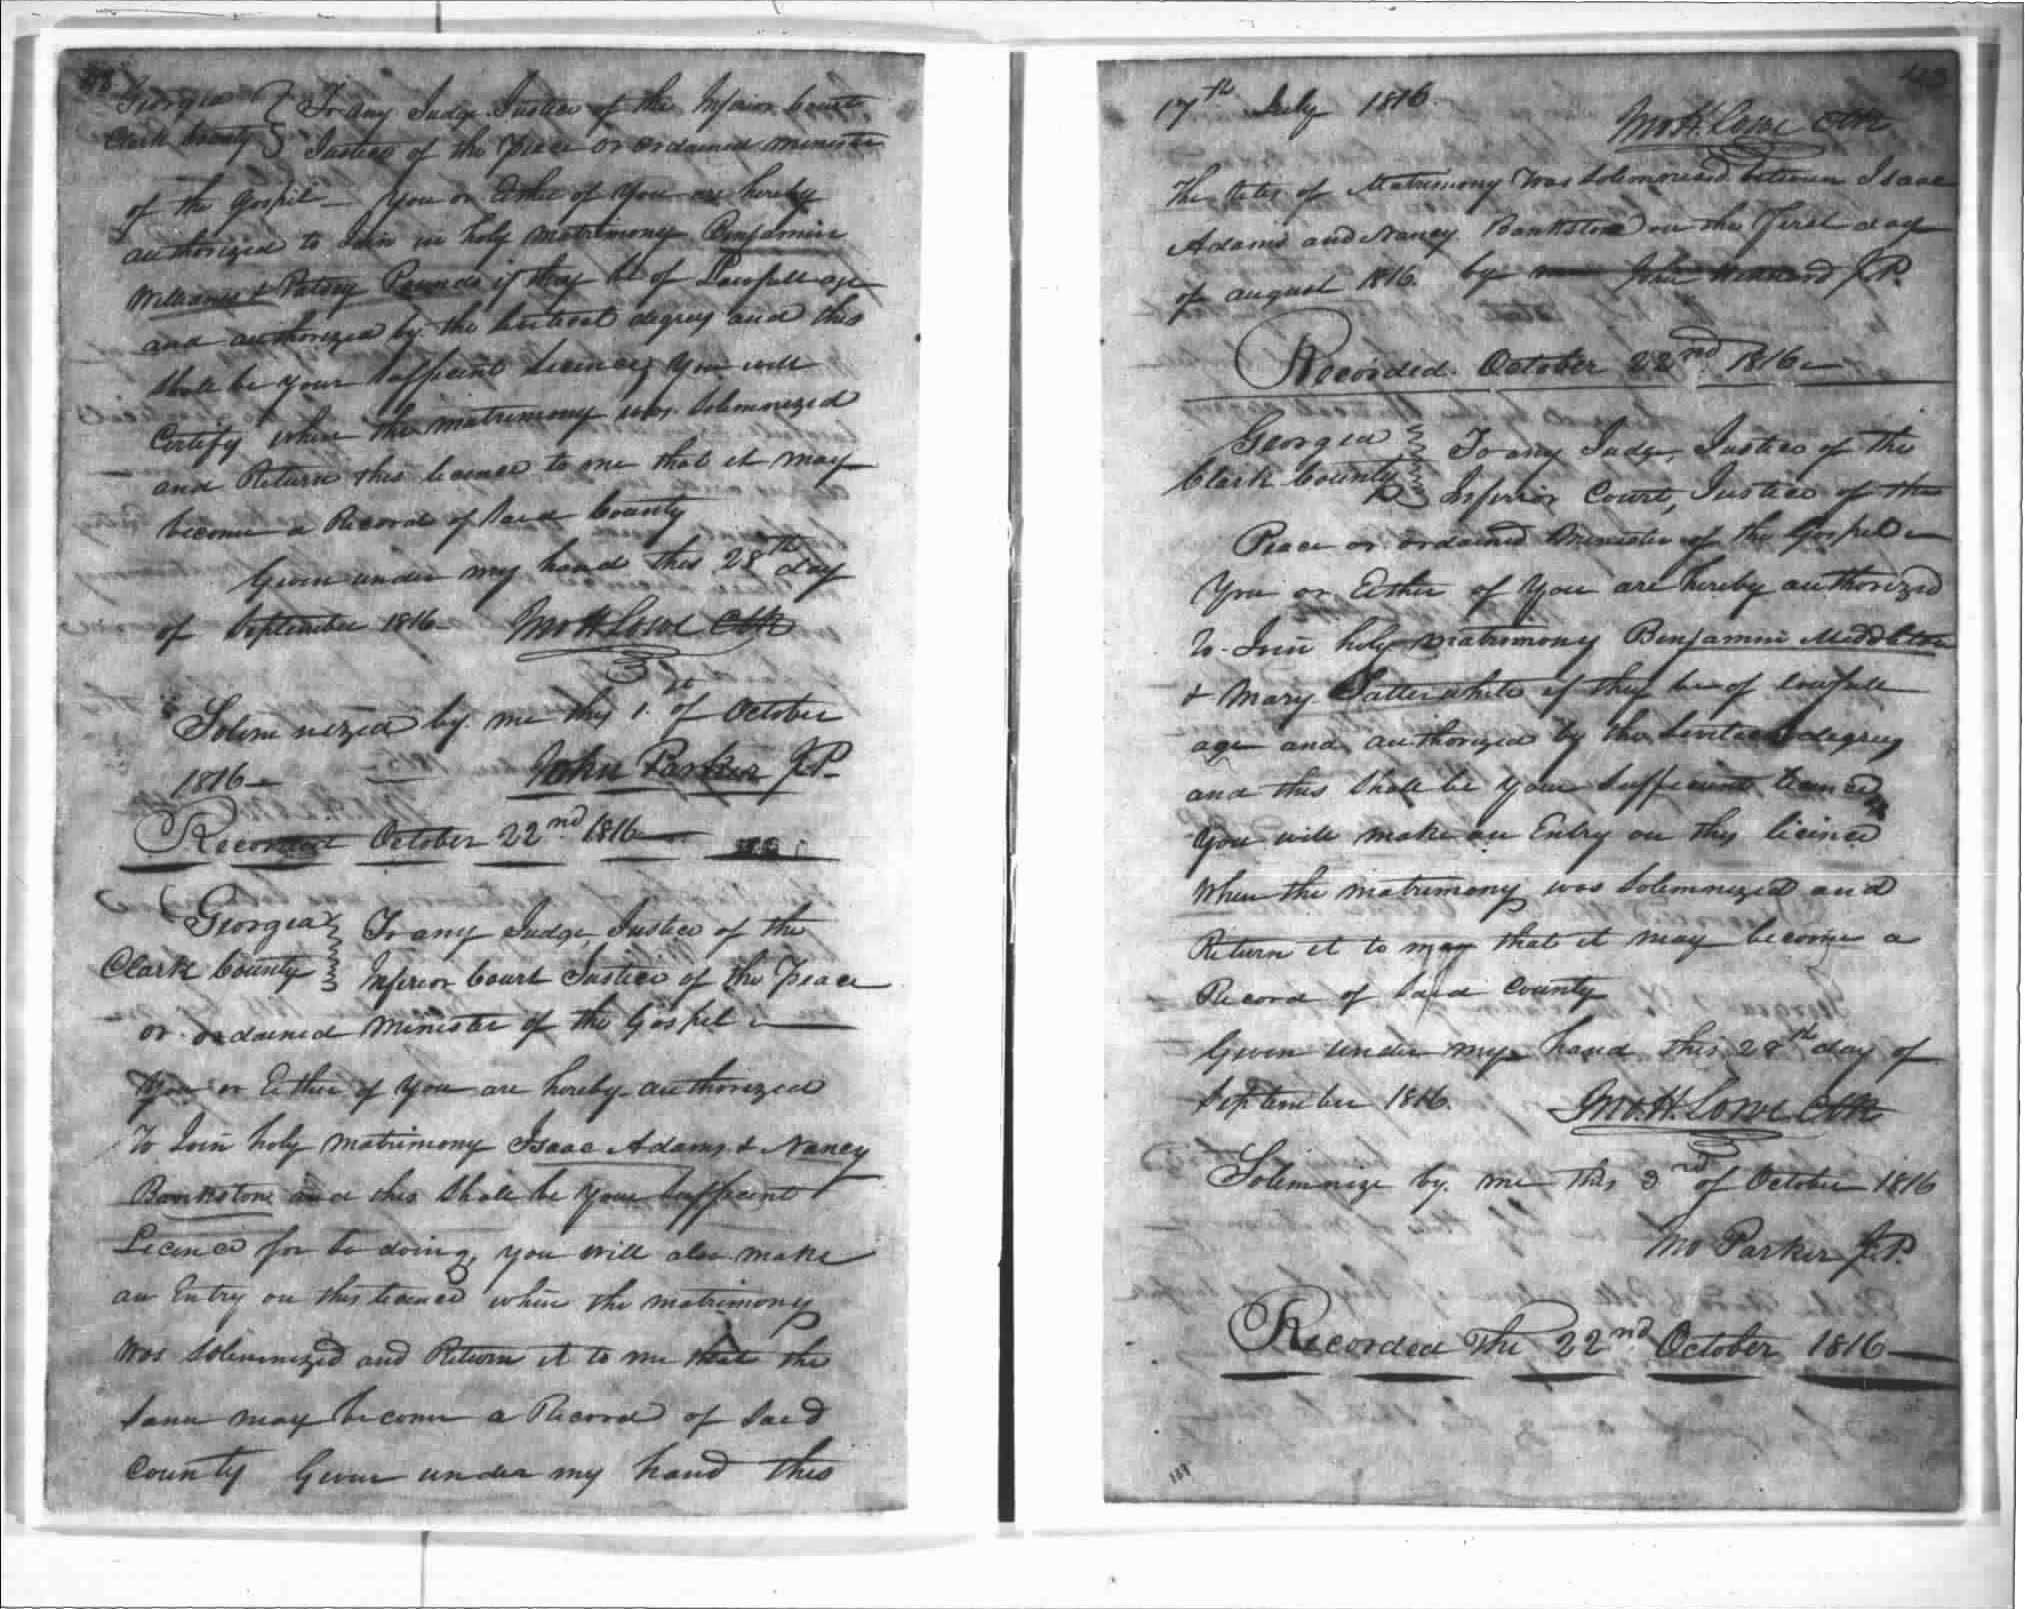 Georgia } To any Judge Justice of the Inferior Court
Clark County } Justice of the Peace or ordained minister
of the Gospel — You or Either of You are hereby
authorized to Join in holy matrimony Benjamin
Williams & Patsey Pounds if they be of Lawfull age
and authorized by the Levitical degrees and this
Shall be your Sufficient Licence, You will
Certify when the matrimony was Solemnized
and Return this licence to me that it may
become a Record of Said County
Given under my hand this 28th day
of September 1816 Jno H Lowe Clk
Solemnized by me this 1st of October
1816 — John Parker J.P.
Recorded October 22nd 1816
Georgia } To any Judge, Justice of the
Clark County } Inferior Court Justice of the Peace
or ordained minister of the Gospel —
You or Either of You are hereby authorized
To Join holy matrimony Isaac Adams & Nancy
Bankstone and this Shall be Your Sufficient
Licence for So doing, you will also make
an Entry on this licence when the matrimony
was Solemnized and Return it to me that the
Same may become a Record of Said
County Given under my hand this
17th July 1816.
Jno H. Lowe Clk
The Rites of Matrimony was Solemnized between Isaac
Adams and Nancy Bankstone on the First day
of august 1816. by John J.P.
Recorded. October 22nd 1816 —
Georgia } To any Judge, Justice of the
Clark County } Inferior Court, Justice of the
Peace or ordained Minister of the Gospel —
You or Either of You are hereby authorized
To Join holy matrimony Benjamin Middleton
& Mary Satterwhite if they be of lawfull
age and authorized by the Levitical degrees
and this Shall be Your Sufficient licence
You will make an Entry on this licence
When the matrimony was Solemnized and
Return it to me that it may become a
Record of Said County
Given under my hand this 28th day of
September 1816. Jno. H. Lowe Clk
Solemnize by me this 3rd of October 1816
Jno Parker J.P.
Recorded The 22nd October 1816 —